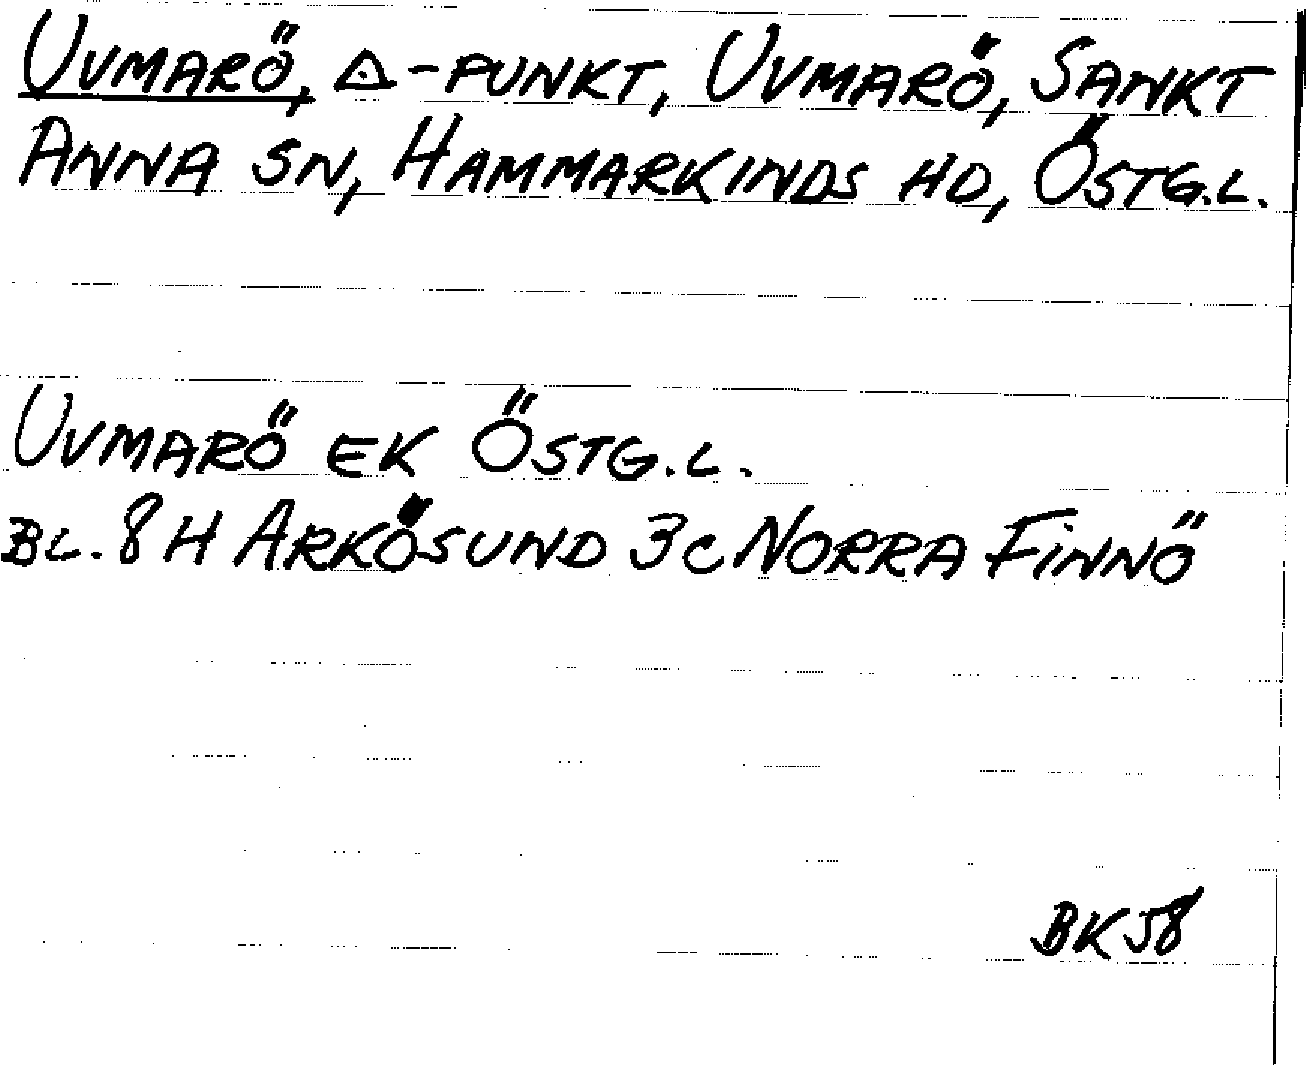 UVMARÖ, △-PUNKT, UVMARÖ, SANKT
ANNA SN, HAMMARKINDS HD, ÖSTG.L.
UVMARÖ EK ÖSTG.L.
BL. 8 H ARKÖSUND 3 C NORRA FINNÖ
BK 58